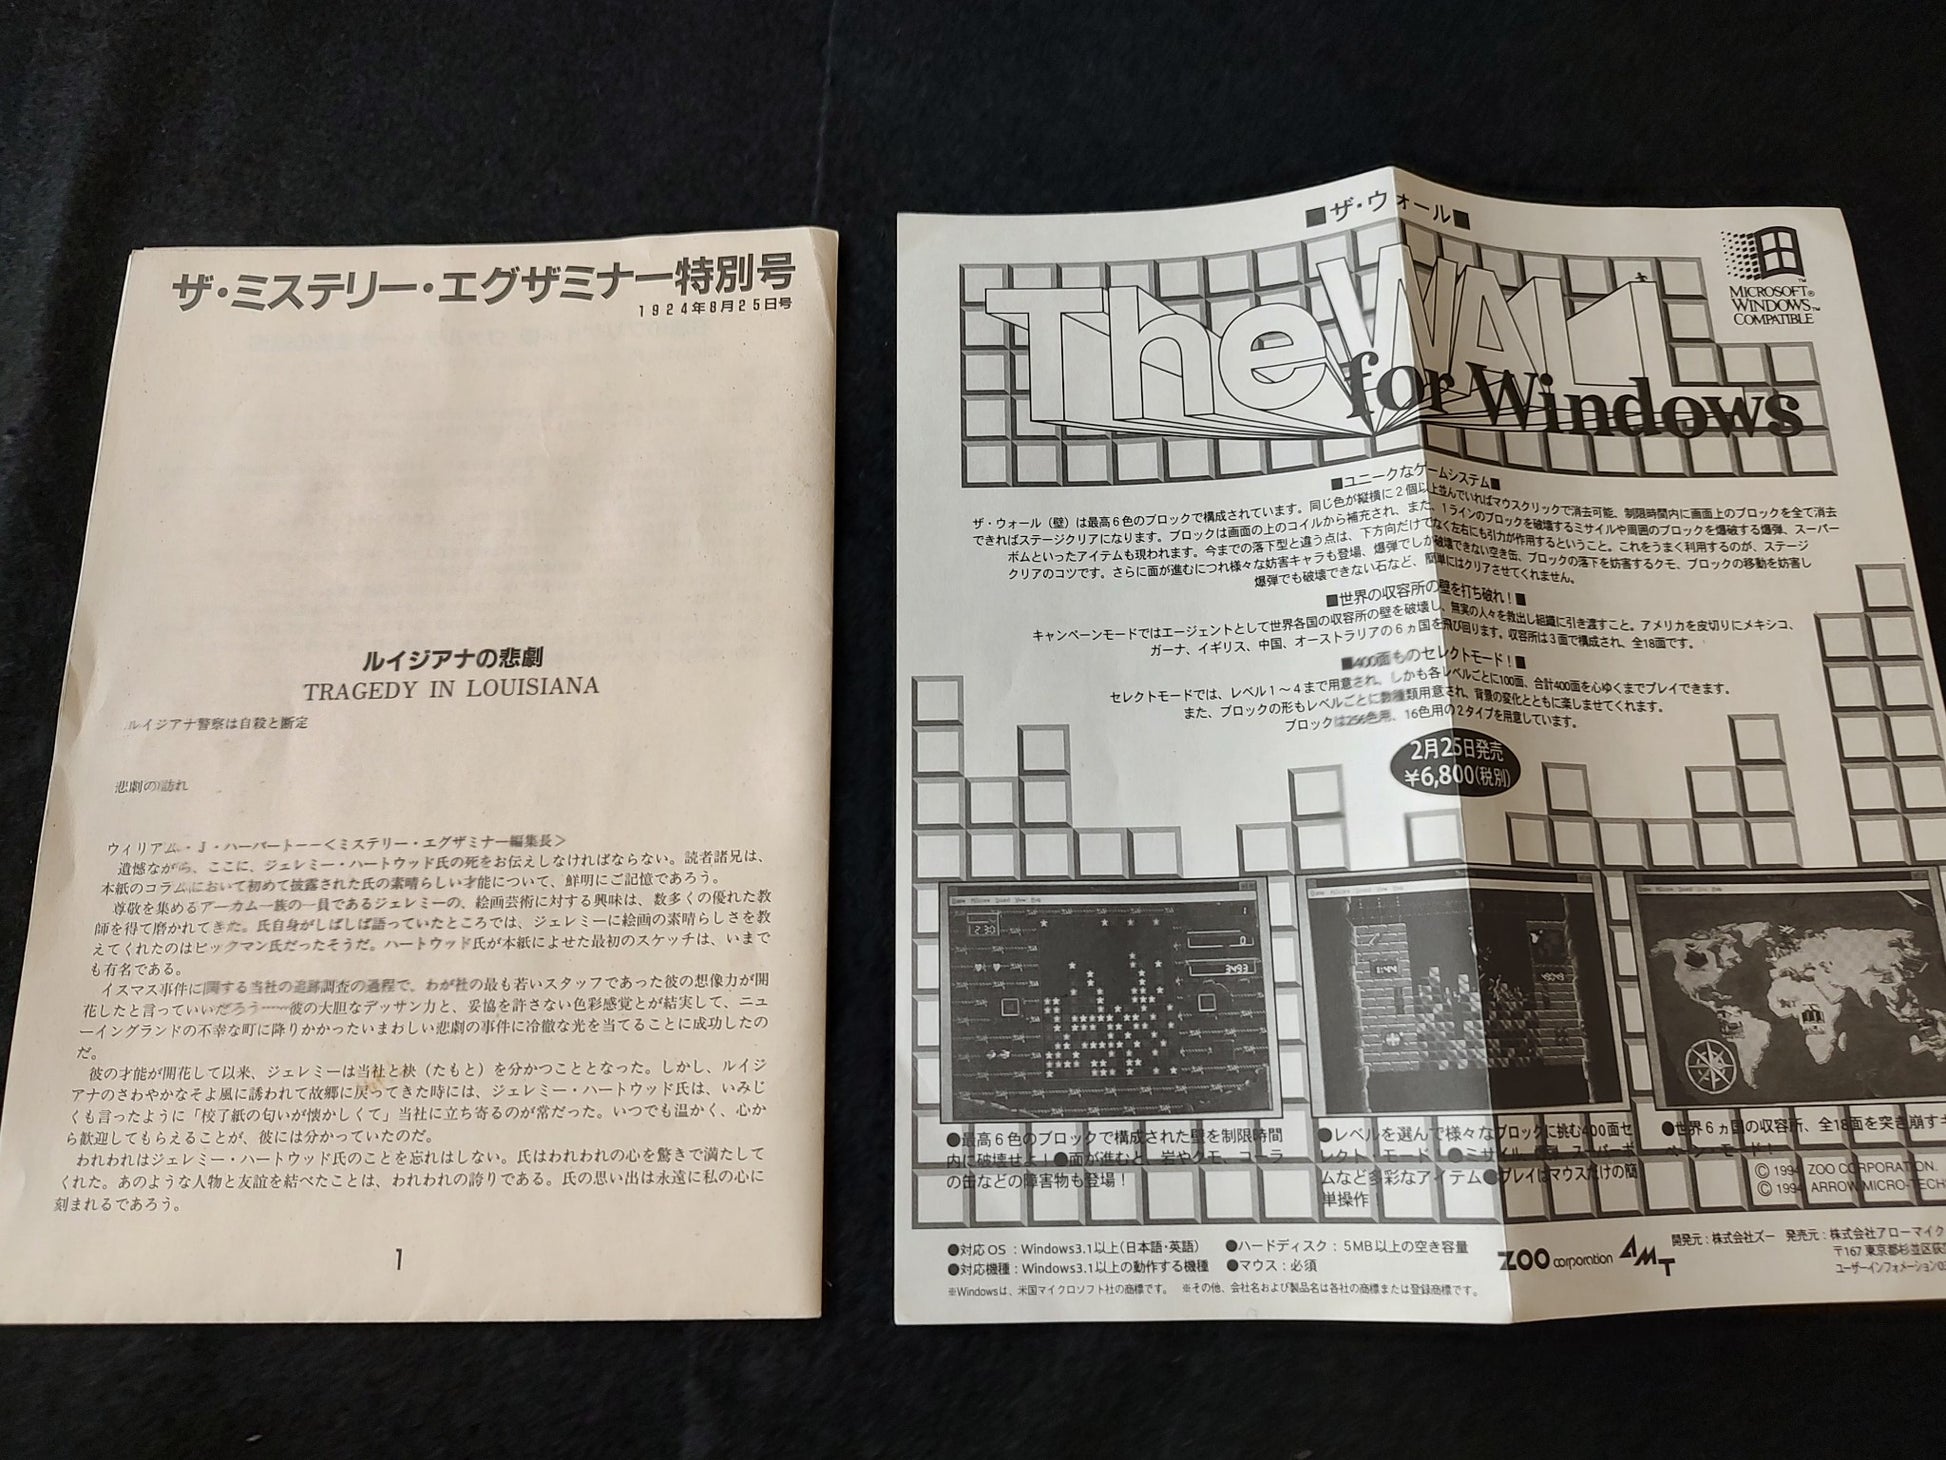 ザ・ミステリー・エグザミナー特別号
1924年8月25日号
ルイジアナの悲劇
TRAGEDY IN LOUISIANA
ルイジアナ警察は自殺と断定
悲劇の訪れ
ウィリアム・J・ハーバート−−<ミステリー・エグザミナー編集長>
遺憾ながら、ここに、ジェレミー・ハートウッド氏の死をお伝えしなければならない。読者諸兄は、
本紙のコラムにおいて初めて披露された氏の素晴らしい才能について、鮮明にご記憶であろう。
尊敬を集めるアーカム一族の一員であるジェレミーの、絵画芸術に対する興味は、数多くの優れた教
師を得て磨かれてきた。氏自身がしばしば語っていたところでは、ジェレミーに絵画の素晴らしさを教
えてくれたのはピックマン氏だったそうだ。ハートウッド氏が本紙によせた最初のスケッチは、いまで
も有名である。
イスマス事件に関する当社の追跡調査の過程で、わが社の最も若いスタッフであった彼の想像力が開
花したと言っていいだろう……彼の大胆なデッサン力と、妥協を許さない色彩感覚とが結実して、ニュ
ーイングランドの不幸な町に降りかかったいまわしい悲劇の事件に冷徹な光を当てることに成功したの
だ。
彼の才能が開花して以来、ジェレミーは当社と袂（たもと）を分かつこととなった。しかし、ルイジ
アナのさわやかなそよ風に誘われて故郷に戻ってきた時には、ジェレミー・ハートウッド氏は、いみじ
くも言ったように「校了紙の匂いが懐かしくて」当社に立ち寄るのが常だった。いつでも温かく、心か
ら歓迎してもらえることが、彼には分かっていたのだ。
われわれはジェレミー・ハートウッド氏のことを忘れはしない。氏はわれわれの心を驚きで満たして
くれた。あのような人物と友誼を結べたことは、われわれの誇りである。氏の思い出は永遠に私の心に
刻まれるであろう。
1
■ザ・ウォール■
The WALL
for Windows
MICROSOFT®
WINDOWS™
COMPATIBLE
■ユニークなゲームシステム■
ザ・ウォール（壁）は最高6色のブロックで構成されています。同じ色が縦横に2個以上並んでいればマウスクリックで消去可能、制限時間内に画面上のブロックを全て消去
できればステージクリアになります。ブロックは画面の上のコイルから補充され、また、1ラインのブロックを破壊するミサイルや周囲のブロックを爆破する爆弾、スーパー
ボムといったアイテムも現われます。今までの落下型と違う点は、下方向だけでなく左右にも引力が作用するということ。これをうまく利用するのが、ステージ
クリアのコツです。さらに面が進むにつれ様々な妨害キャラも登場、爆弾でしか破壊できない空き缶、ブロックの落下を妨害するクモ、ブロックの移動を妨害し
爆弾でも破壊できない石など、簡単にはクリアさせてくれません。
■世界の収容所の壁を打ち破れ！■
キャンペーンモードではエージェントとして世界各国の収容所の壁を破壊し、無実の人々を救出し組織に引き渡すこと。アメリカを皮切りにメキシコ、
ガーナ、イギリス、中国、オーストラリアの6ヵ国を飛び回ります。収容所は3面で構成され、全18面です。
■400面ものセレクトモード！■
セレクトモードでは、レベル1〜4まで用意され、しかも各レベルごとに100面、合計400面を心ゆくまでプレイできます。
また、ブロックの形もレベルごとに数種類用意され、背景の変化とともに楽しませてくれます。
ブロックは256色用、16色用の2タイプを用意しています。
2月25日発売
¥6,800(税別)
●最高6色のブロックで構成された壁を制限時間
内に破壊せよ！●面が進むと、岩やクモ、コーラ
の缶などの障害物も登場！
●レベルを選んで様々なブロックに挑む400面セ
レクト・モード ●ミサイル、爆弾、スーパーボ
ムなど多彩なアイテム●プレイはマウスだけの簡
単操作！
●世界6ヵ国の収容所、全18面を突き崩すキ
ペーン・モード！
© 1994 ZOO CORPORATION.
© 1994 ARROW MICRO-TECH
●対応OS：Windows3.1以上(日本語・英語)
●ハードディスク：5MB以上の空き容量
●対応機種：Windows3.1以上の動作する機種
●マウス：必須
※Windowsは、米国マイクロソフト社の商標です。 ※その他、会社名および製品名は各社の商標または登録商標です。
ZOO corporation AMT
開発元：株式会社ズー 発売元：株式会社アローマイク
〒167 東京都杉並区荻
ユーザーインフォメーション03